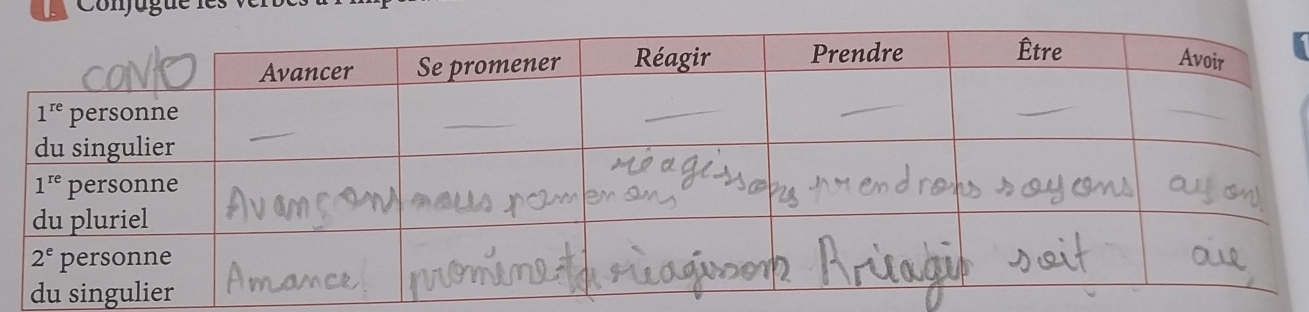 1. Conjugue les verbes à l'imp
CONJO
Avancer Se promener Réagir Prendre Être Avoir
1re personne du singulier — — — — — —
1re personne du pluriel Avançons nous promenons réagissons prendrons soyons ayons
2e personne du singulier Amance soit aie